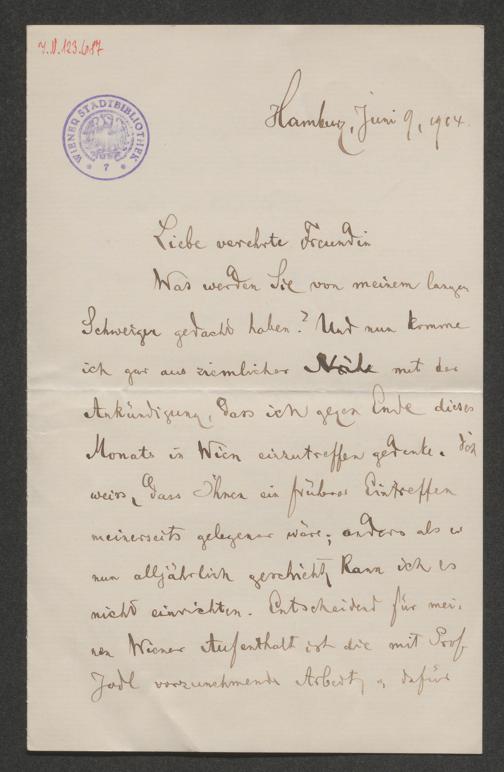 J.N.123.617
WIENER STADTBIBLIOTHEK
* 7 *
Hamburg, Juni 9, 1904.
Liebe verehrte Freundin
Was werden Sie von meinem langen
Schweigen gedacht haben? Und nun komme
ich gar aus ziemlicher Nähe mit der
Ankündigung, dass ich gegen Ende dieses
Monats in Wien einzutreffen gedenke. Ich
weiss, dass Ihnen ein früheres Eintreffen
meinerseits gelegener wäre; anders als es
nun alljährlich geschieht, kann ich es
nicht einrichten. Entscheidend für mei-
nen Wiener Aufenthalt ist die mit Prof.
Jodl vorzunehmende Arbeit, u dafür